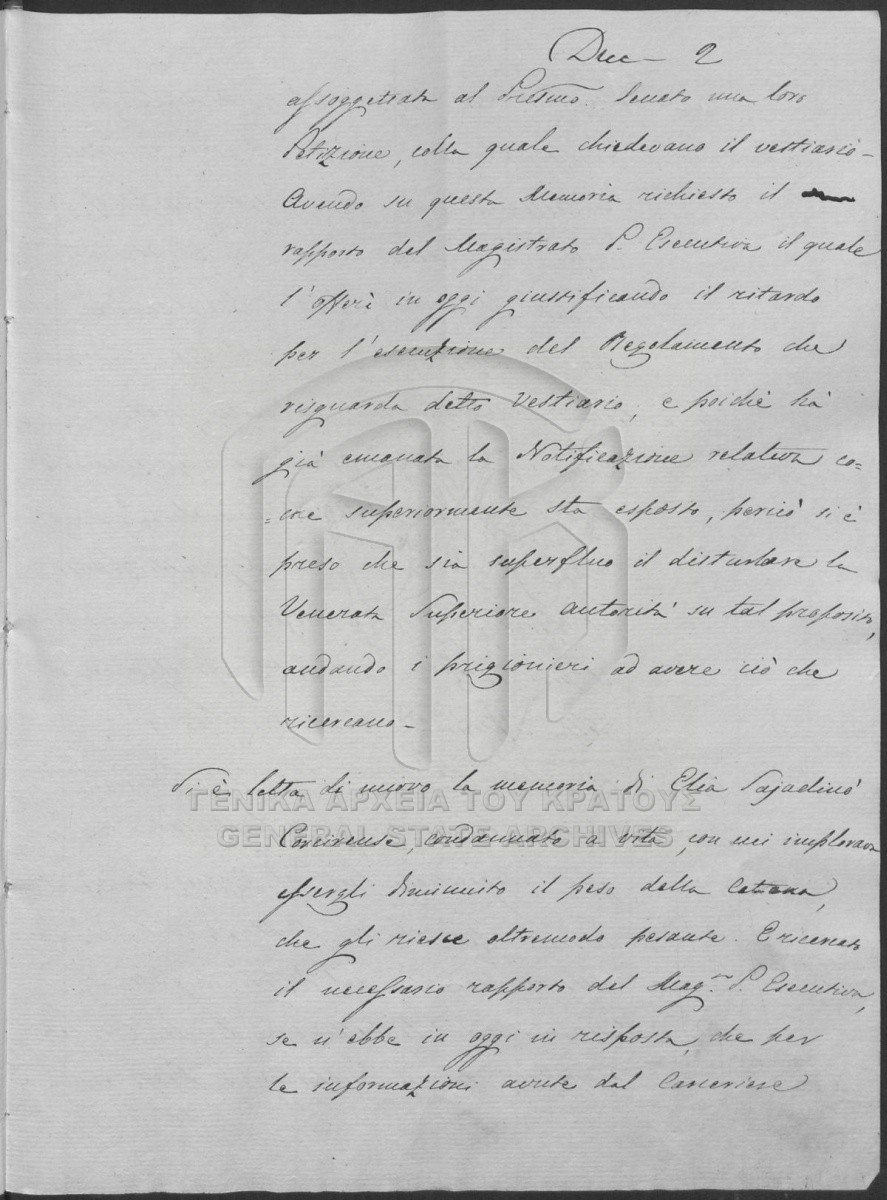 Dec - 2
assoggettata al Prestmo. Senato una loro
Petizione, colla quale chiedevano il vestiario -
Avendo su questa Memoria richiesto il
rapporto del Magistrato P. Esecutiva il quale
l'offerì in oggi giustificando il ritardo
per l'esecuzione del Regolamento che
risguarda detto Vestiario, e poichè hà
già emanata la Notificazione relativa co=
=me superiormente sta esposto, perciò si è
preso che sia superfluo il disturbare la
Venerata Superiore autorità su tal proposito,
andando i prigionieri ad avere ciò che
ricercano -
Si è letta di nuovo la memoria di Elia
Corcirense, condannato a vita, con cui implorava
essergli diminuito il peso della Catena,
che gli riesce oltremodo pesante. E ricercato
il necessario rapporto del Mag.to P. Esecutiva,
se n'ebbe in oggi in risposta, che per
le informazioni avute dal Carceriere
ΓΕΝΙΚΑ ΑΡΧΕΙΑ ΤΟΥ ΚΡΑΤΟΥΣ
GENERAL STATE ARCHIVES